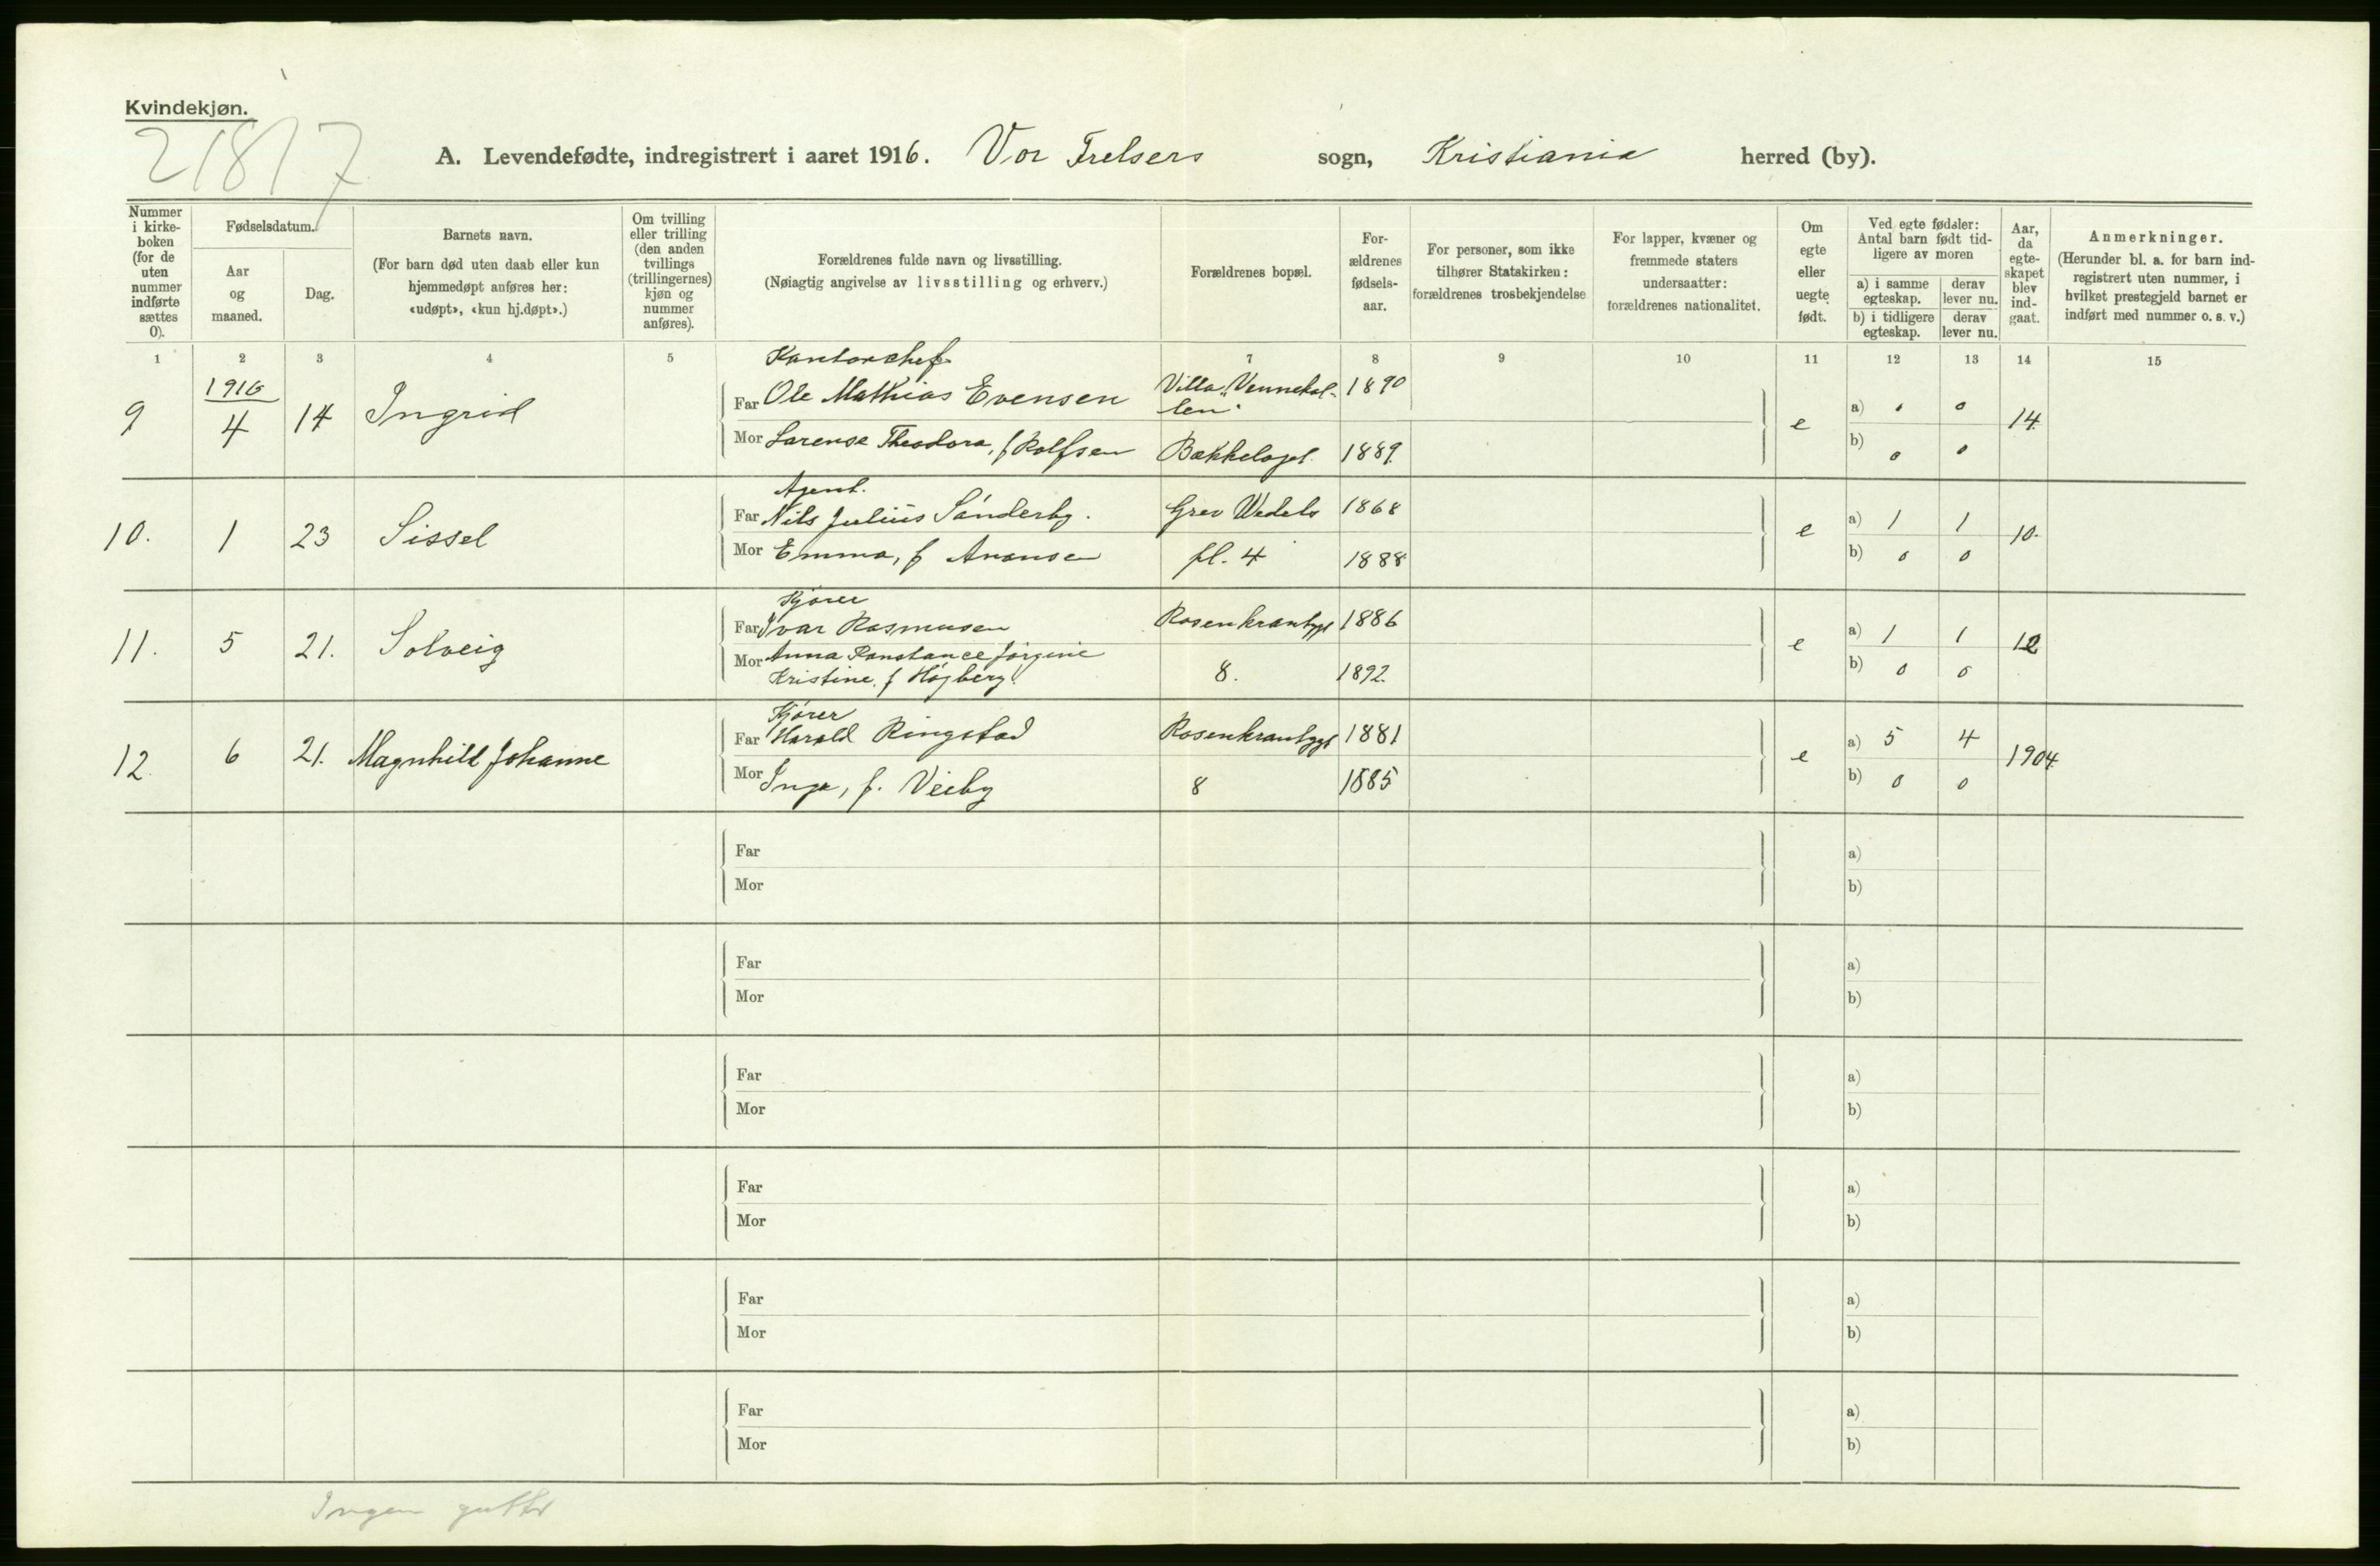 Kvindekjøn.
21817
A. Levendefødte, indregistrert i aaret 1916. Vor Frelsers sogn, Kristiania herred (by).
Nummer i kirke-boken (for de uten nummer indførte sættes 0).
Fødselsdatum.
Aar og maaned.
Dag.
Barnets navn.
(For barn død uten daab eller kun hjemmedøpt anføres her: «udøpt», «kun hj.døpt».)
Om tvilling eller trilling (den anden tvillings (trillingernes) kjøn og nummer anføres).
Forældrenes fulde navn og livsstilling.
(Nøiagtig angivelse av livsstilling og erhverv.)
Forældrenes bopæl.
For-ældrenes fødsels-aar.
For personer, som ikke tilhører Statskirken: forældrenes trosbekjendelse
For lapper, kvæner og fremmede staters undersaatter: forældrenes nationalitet.
Om egte eller uegte født.
Ved egte fødsler: Antal barn født tid-ligere av moren
a) i samme egteskap.
derav lever nu.
b) i tidligere egteskap.
derav lever nu.
Aar, da egte-skapet blev ind-gaat.
Anmerkninger.
(Herunder bl. a. for barn ind-registrert uten nummer, i hvilket prestegjeld barnet er indført med nummer o. s. v.)
1 2 3 4 5 7 8 9 10 11 12 13 14 15
Kontorchef
1916
9 4 14 Ingrid Far Ole Mathias Evensen Villa "Vennekol- 1890 e a) 0 0 14
len"
Mor Larense Theodora, f Rolfsen Bækkelaget. 1889. b) 0 0
Agent.
10. 1 23 Sissel Far Nils Julius Sánderby. Grev Wedels 1868 e a) 1 1 10.
Mor Emma, f Aronsen pl. 4 1888 b) 0 0
Kjører
11. 5 21. Solveig Far Ivar Rasmusen Rosenkrantzgt 1886 e a) 1 1 12
Mor Anna Konstance Jørgine
Kristine, f Høgberg. 8. 1892. b) 0 0
Kjører
12. 6 21. Magnhild Johanne Far Harald Ringstad Rosenkrantzgt 1881 e a) 5 4 1904.
Mor Inga, f. Veiby 8 1885 b) 0 0
Far a)
Mor b)
Far a)
Mor b)
Far a)
Mor b)
Far a)
Mor b)
Far a)
Mor b)
Far a)
Mor b)
Ingen gutter